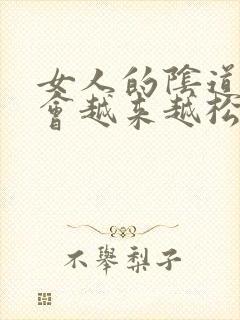 女人的陰道
會越來越松
不舉梨子